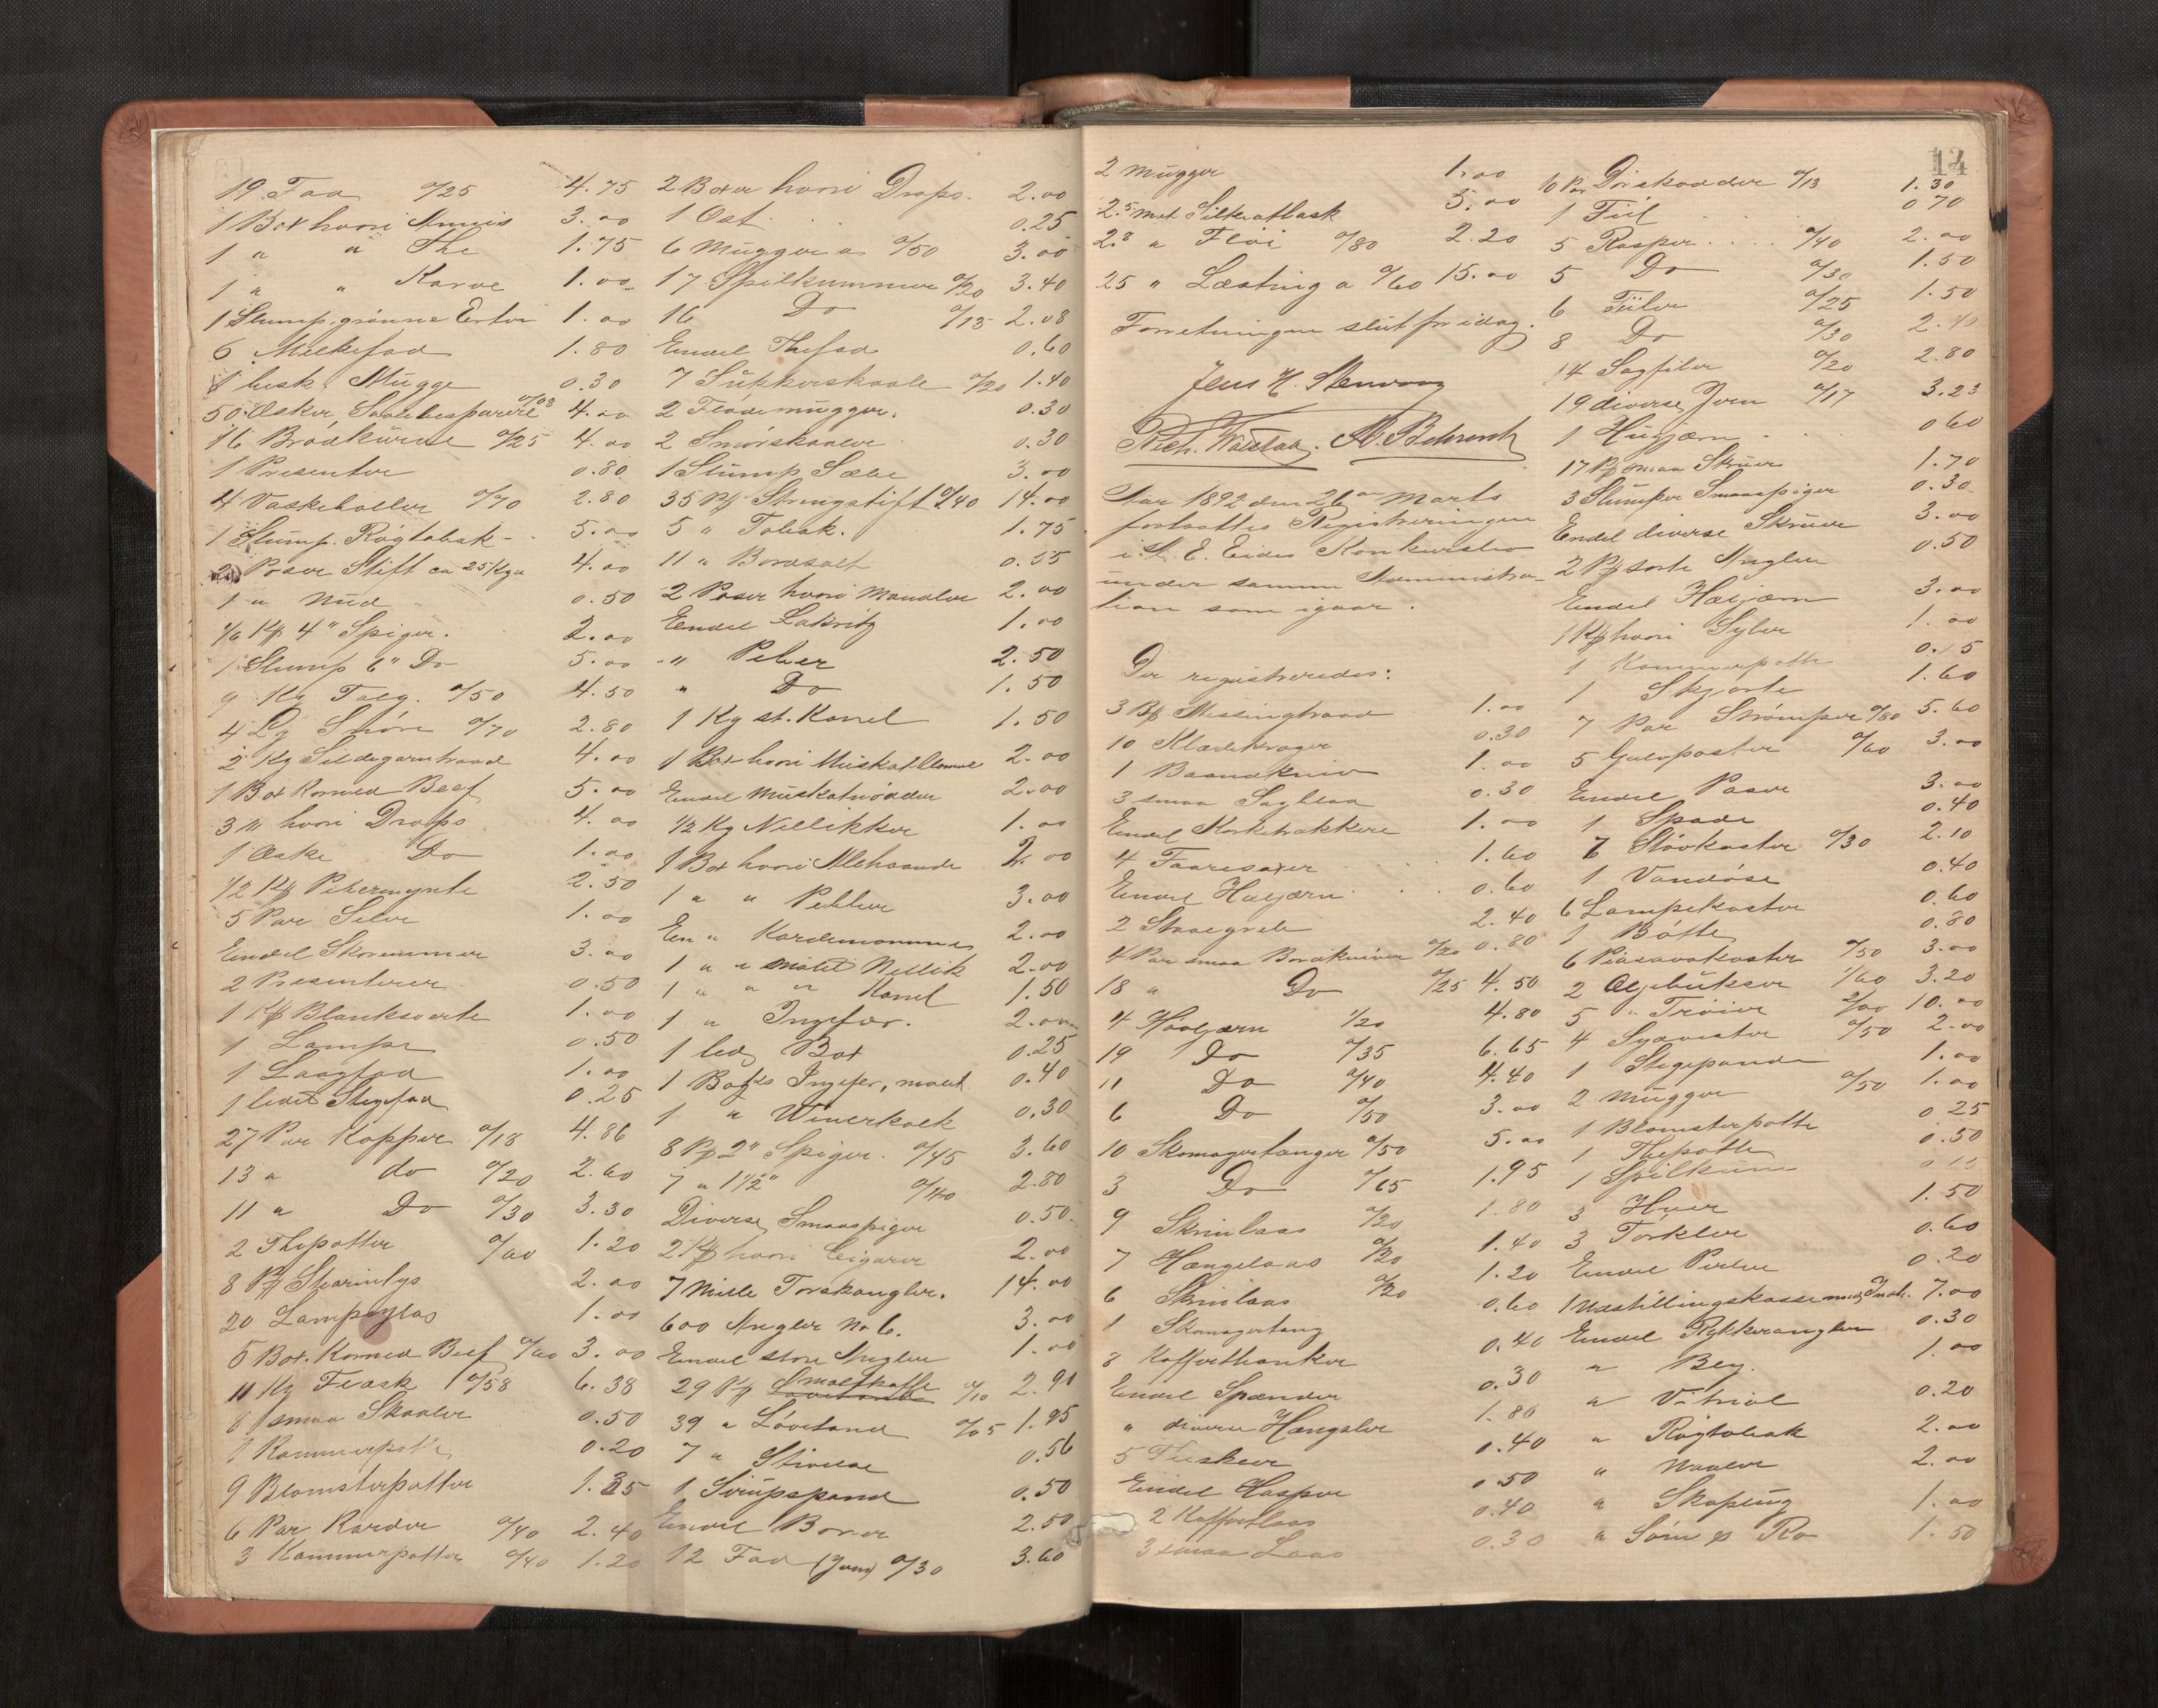 19 Fad a/25 4.75
1 Box hvori Anniis 3.00
1 " " The 1.75
1 " " Karve 1.00
1 Slump grønne Erter 1.00
6 Melkefad 1.80
1 besk. Mugge 0.30
50 Æsker Saalebesparere a/08 4.00
16 Brødkurve a/25 4.00
1 Presenter 0.80
4 Vaskeballer a/70 2.80
1 Slump Røgtobak 5.00
Poser Stift ca 25 Kga 4.00
1 " Nud 0.50
Kg 4" Spiger. 2.00
1 Slump 6" Do 5.00
9 Kg Talg. a/50 4.50
4 Snøre a/70 2.80
2 Kg Sildegarntraad 4.00
1 Box Korned Beef 5.00
3 " hvori Drops 4.00
1 Æske Do 1.00
1/2 Pf Pebermynte 2.50
5 Par Seler 1.00
Endel Skoremmer 3.00
2 Presenterer 0.50
1 Kp Blanksverte 1.00
1 Lampe 0.50
1 Laagfad 1.00
1 ledet Stegefad 0.25
27 Par Kopper a/18 4.86
13 " do a/20 2.60
11 " Do a/30 3.30
2 Thepotter a/60 1.20
8 Pf Stearinlys 2.00
20 Lampeglas 1.00
5 Box. Korned Beef a/60 3.00
11 Kg Flæsk a/58 6.38
6 smaa Skaaler 0.50
1 Kammerpotte 0.20
9 Blomsterpotter 1.35
6 Par Karder a/40 2.40
3 Kammerpotter a/40 1.20
2 Boxer hvori Drops. 2.00
1 Ost 0.25
6 Mugger a a/50 3.00
17 Spilkummer a/20 3.40
16 Do a/13 2.08
Endel Thefad 0.60
7 Sukkerskaale a/20 1.40
2 Flødemugger. 0.30
2 Smørskaaler 0.30
1 Slump Sæbe 3.00
35 Pf Strengstift a/40 14.00
5 " Tobak. 1.75
11 " Bordsalt 0.55
2 Poser hvori Mandler 2.00
Endel Lakritz 1.00
" Peber 2.50
" Do 1.50
1 Kg st. Kanel 1.50
1 Box hvori Muskatblomme 2.00
Endel Muskatnødder 2.00
1/2 Kg Nellikker 1.00
1 Box hvori Alehaande 2.00
1 " " Pebber 3.00
En " Kardemomme 2.00
1 " " malet Nellik 2.00
1 " " " Kanel 1.50
1 " Ingefær. 2.00
1 ledg Box 0.25
1 Box Ingefer, malt 0.40
1 " Winerkork 0.30
8 Pf 2" Spiger. a/45 3.60
7 " 1 1/2" a/40 2.80
Diverse Smaaspiger 0.50
2 Kp hvori Cigarer 2.00
7 Mille Torskangler. 14.00
600 Angler No 6. 3.00
Endel store Angler 1.00
29 Pf Smaltkaffe a/10 2.90
39 " Løvetand a/05 1.95
7 " Stivelse 0.56
1 Sirupspand 0.50
Endel Borer 2.50
12 Fad (Jern) a/30 3.60
14
2 Mugger 1.00
2.5 Met Silkeatlask 5.00
2.8 " Fløi a/80 2.20
25 " Læstning a a/60 15.00
Forretningen slut for idag.
Jens H. Stenvaag
A. Behrendt
Aar 1892 den 26de Marts
fortsattes Registreringen
i L. E. Eides Konkursbo
under samme Administra-
tion som igaar.
Der registreredes:
3 Messingtraad 1.00
10 Klædekroger 0.30
1 Baandkniv 1.00
3 smaa Sagblaa 0.30
Endel Korketrækkere 1.00
4 Faaresaxer 1.60
Endel Høvljern 0.60
2 Straegrab 2.40
4 Par smaa Bordkniver a/20 0.80
18 " Do a/25 4.50
4 Høvljern 1/20 4.80
19 Do a/35 6.65
11 Do a/40 4.40
6 Do a/50 3.00
10 Skomagertanger a/50 5.00
3 Do a/65 1.95
9 Skrinlaas a/20 1.80
7 Hængelaas a/20 1.40
6 Skrinlaas a/20 1.20
1 Skomagertang 0.60
8 Kofferthanker 0.40
Endel Spænder 0.30
" diverse Hængsler 1.80
5 Fleskeer 0.40
Endel Hasper 0.50
2 Koffertlaas 0.40
3 smaa Laas 0.30
10 Par Dørskodder a/13 1.30
1 Fiil 0.70
5 Rasper a/40 2.00
5 Do a/30 1.50
6 Fiiler a/25 1.50
8 Do a/30 2.40
14 Sagfiler a/20 2.80
19 diverse Jern a/17 3.23
1 Hugjern 0.60
17 Pf smaa Skruer 1.70
3 Slumper Smaaspiger 0.30
Endel diverse Skruer 3.00
2 Pf sorte Angler 0.50
Endel Høljern 3.00
1 Kp hvori Syler 1.00
1 Kammerpotte
1 Skjorte 1.60
7 Par Strømper a/80 5.60
5 Gulvposter a/60 3.00
Endel Poser 3.00
1 Spade 0.40
7 Støvkoster a/30 2.10
1 Vandøse 0.40
6 Lampekoster 0.60
1 Bøtte 0.80
6 Piasavakoster a/50 3.00
2 Oljebukser 1/60 3.20
5 " Trøier 2/00 10.00
4 Sydvester a/50 2.00
1 Stegepande 1.00
2 Mugger a/50 1.00
1 Blomsterpotte 0.25
1 Thepotte 0.50
1 Spilkum
3 Huer 1.50
3 Tørkler 0.60
Endel Perler 0.20
1 Udstillingskasse med Indh. 7.00
Endel Rykkerangler 0.30
" Beg. 1.00
" Vitriol 0.20
" Røgtobak 2.00
" Naaler 2.00
" Skopling 1.00
" Søm & Ro 1.50